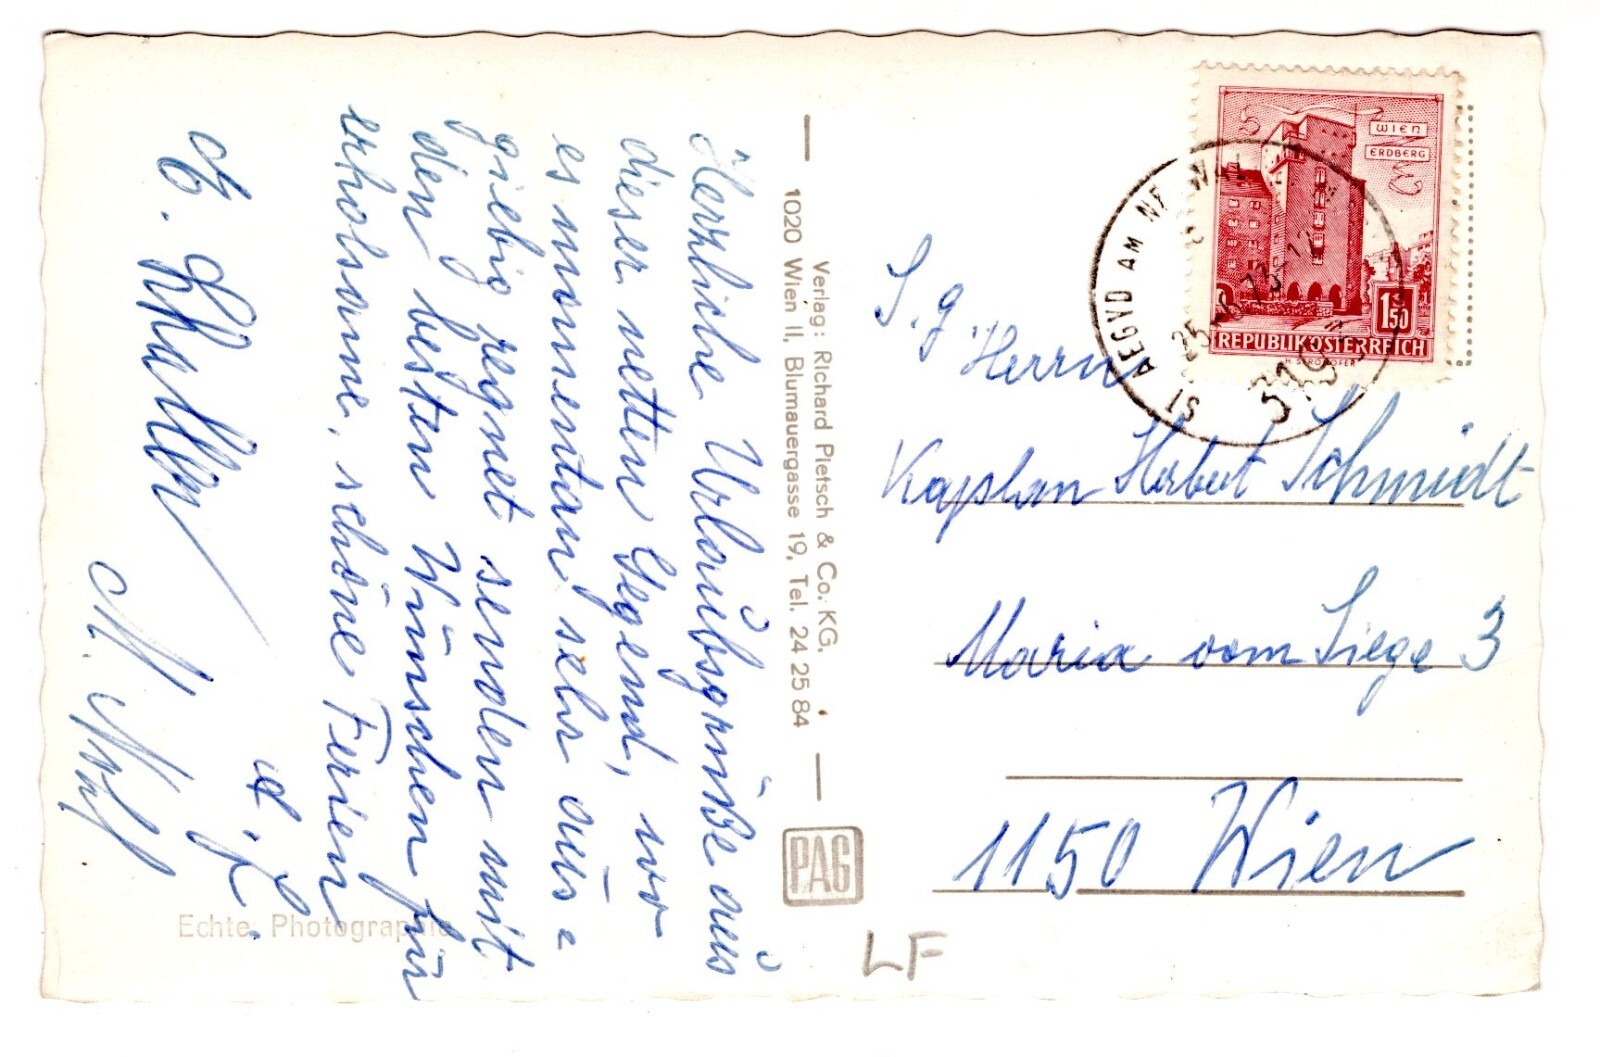 Herzliche Urlaubsgrüße aus
dieser netten Gegend, wo
es momentan sehr aus=
giebig regnet senden mit
den besten Wünschen für
erholsame, schöne Ferien
u.
Echte Photographie
Verlag: Richard Pietsch & Co. KG.
1020 Wien II, Blumauergasse 19, Tel. 24 25 84
PAG
LF
WIEN
ERDBERG
1.50
REPUBLIK ÖSTERREICH
ST. AEGYD AM NEUWALDE
S. g. Herrn
Kaplan Herbert Schmidt
Maria vom Siege 3
1150 Wien